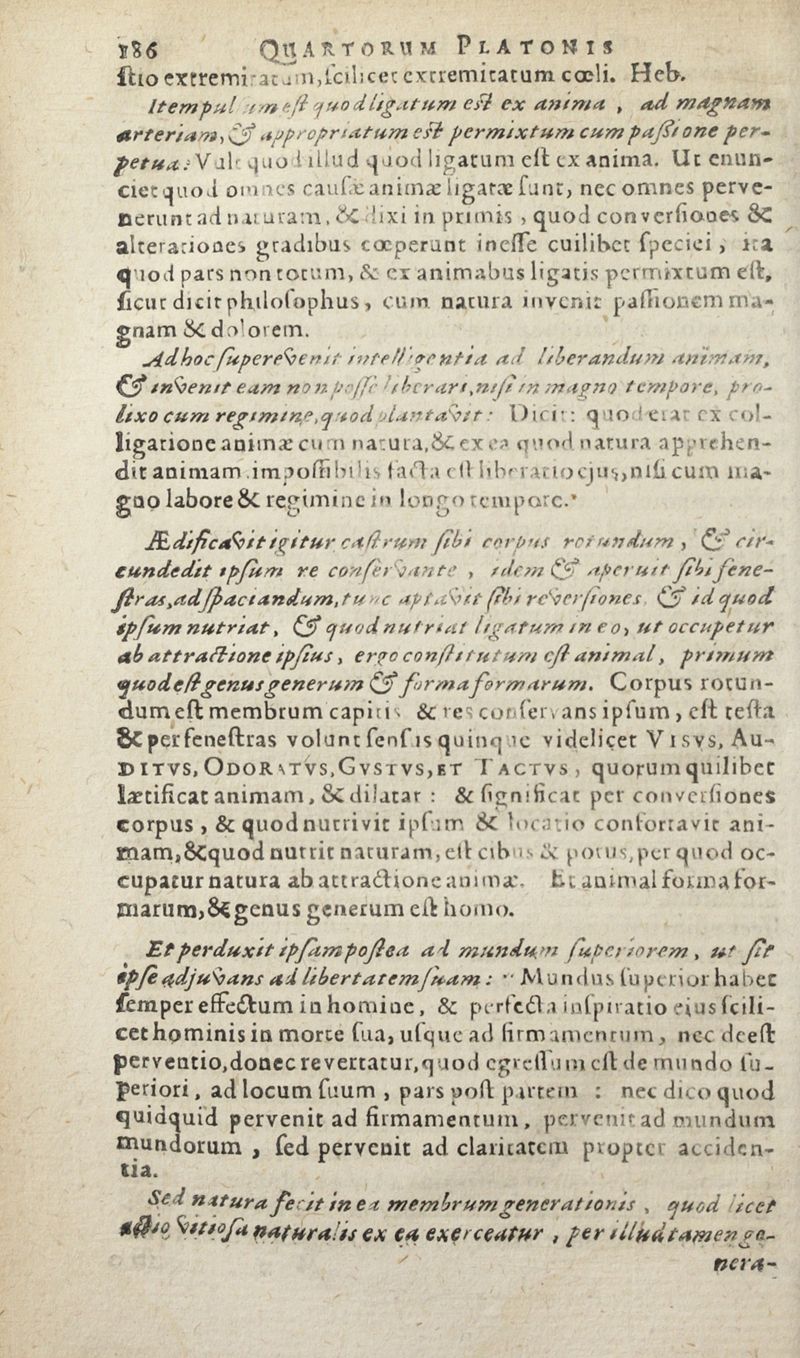 186 QUARTORUM PLATONIS
ſtio extremitatum, ſcilicet extremitatum cœli. Heb.
Item pul um eſt quod ligatum est ex anima , ad magnam
arteriam, & appropriatum est permixtum cum paßione per-
petua: Vult quod illud quod ligatum eſt ex anima. Ut enun-
ciet quod omnes cauſæ animæ ligatæ ſunt, nec omnes perve-
nerunt ad naturam, & dixi in primis , quod converſiones &
alterationes gradibus cœperunt ineſſe cuilibet ſpeciei , ita
quod pars non totum, & ex animabus ligatis permixtum eſt,
ſicut dicit philoſophus, cum natura invenit paſſionem ma-
gnam & dolorem.
Ad hoc ſupervenit intelligentia ad liberandum animam,
& invenit eam non poſſe liberari, niſi in magno tempore, pro-
lixo cum regimine, quod plantavit: Dicit: quod erat ex col-
ligatione animæ cum natura, & ex ea quod natura apprehen-
dit animam impoſſibilis facta eſt liberatio ejus, niſi cum ma-
gno labore & regimine in longo tempore.
Ædificavit igitur caſtrum ſibi corpus rotundum , & cir-
cundedit ipſum re conſervante , idem & aperuit ſibi fene-
ſtras, ad ſpaciandum, tunc aptavit ſibi reverſiones, & id quod
ipſum nutriat, & quod nutriat ligatum in eo, ut occupetur
ab attractione ipſius, ergo conſtitutum eſt animal, primum
quod eſt genus generum & forma formarum. Corpus rotun-
dum eſt membrum capitis & res conſervans ipſum , eſt teſta
& per feneſtras volunt ſenſis quinque videlicet VISVS, AU-
DITVS, ODORATVS, GVSTVS, ET TACTVS , quorum quilibet
lætificat animam, & dilatat : & ſignificat per converſiones
corpus , & quod nutrivit ipſum & locatio confortavit ani-
mam, & quod nutrit naturam, eſt cibus & potus, per quod oc-
cupatur natura ab attractione animæ. Et animal forma for-
marum, & genus generum eſt homo.
Et perduxit ipſam poſtea ad mundum ſuperiorem , ut ſit
ipſe adjuvans ad libertatem ſuam: Mundus ſuperior habet
ſemper effectum in homine, & perfecta inſpiratio ejus ſcili-
cet hominis in morte ſua, uſque ad firmamentum, nec deeſt
perventio, donec revertatur, quod egreſſum eſt de mundo ſu-
periori, ad locum ſuum , pars poſt partem : nec dico quod
quidquid pervenit ad firmamentum, pervenit ad mundum
mundorum , ſed pervenit ad claritatem propter acciden-
tia.
Sed natura fecit in ea membrum generationis , quod licet
actio vitioſa naturalis ex ea exerceatur , per illud tamen ge-
nera-